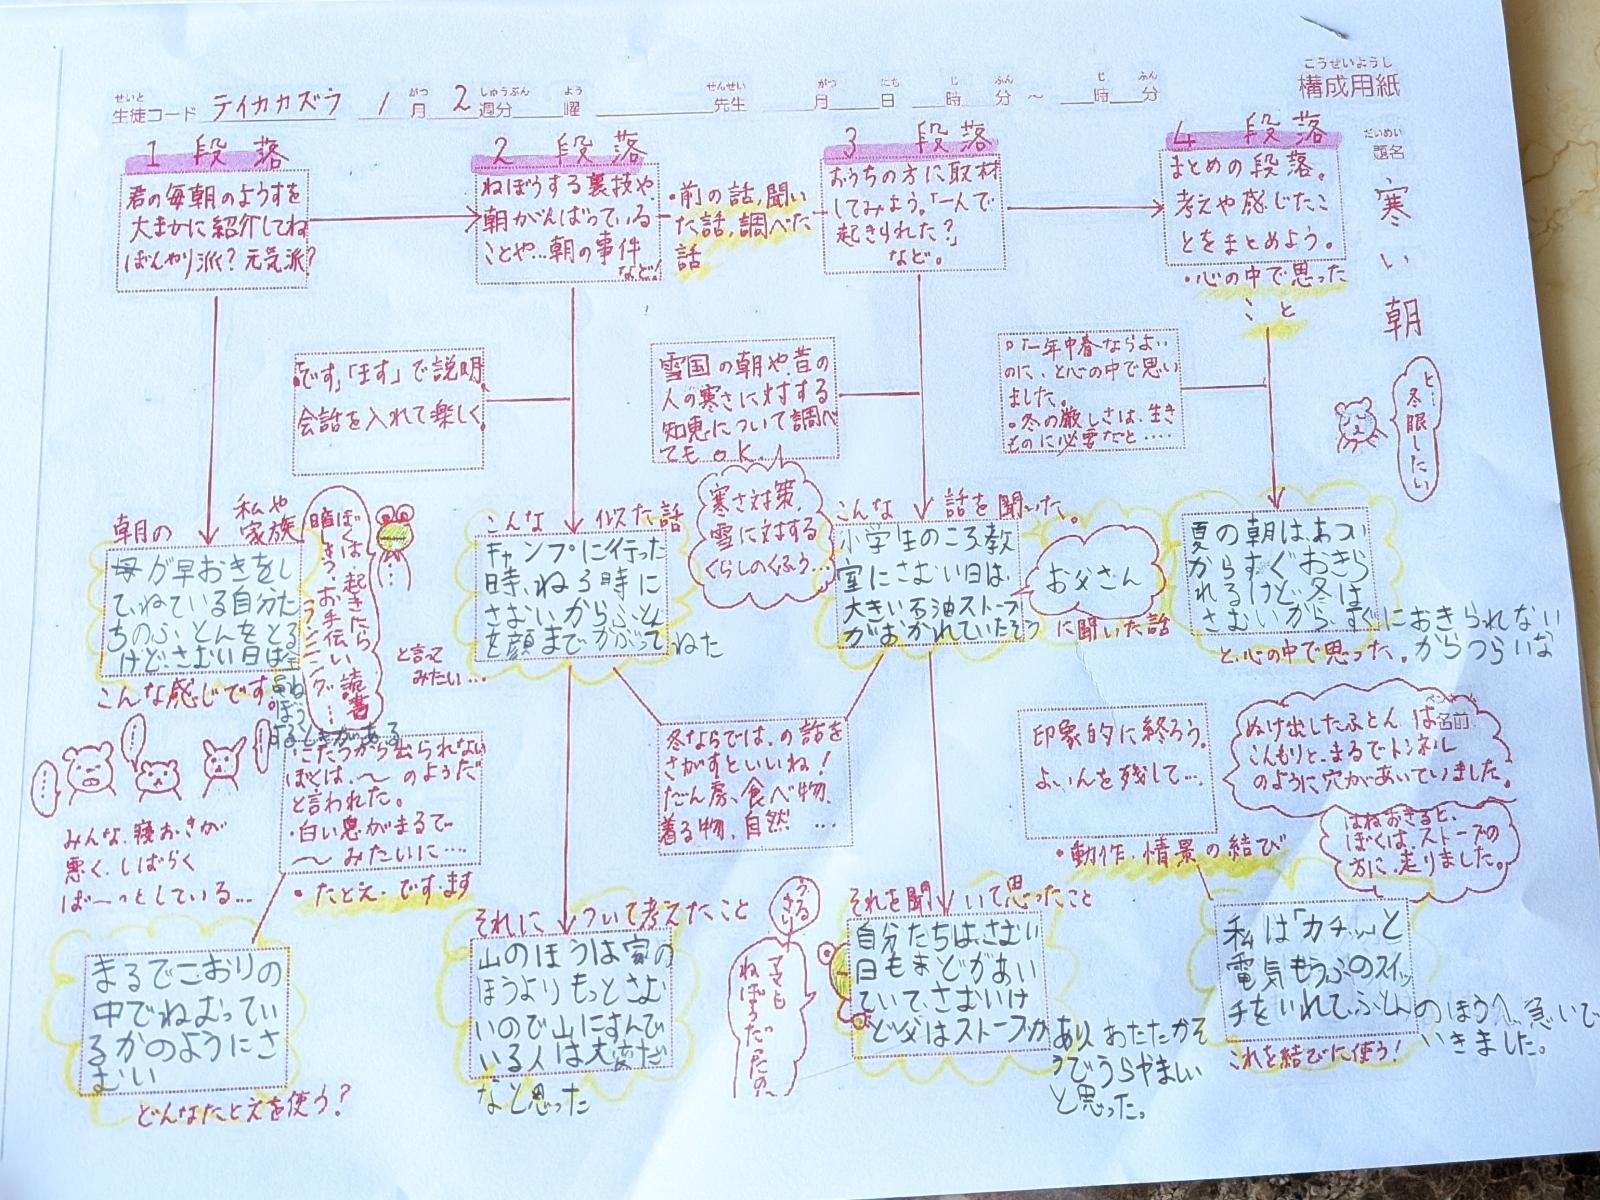 こうせいようし
構成用紙
せいと
生徒コード テイカカズラ 1月 2週分 曜 先生 月 日 時 分 ～ 時 分
がつ しゅうぶん よう せんせい がつ にち じ ふん じ ふん
だいめい
題名
寒い朝
1 段落
君の毎朝のようすを
大まかに紹介してね
ぼんやり派？元気派？
2 段落
ねぼうする裏技や、
朝がんばっている
ことや…朝の事件
など！
・前の話,聞い
た話,調べた
話
3 段落
おうちの方に取材
してみよう。「一人で
起きられた？」
など。
4 段落
まとめの段落。
考えや感じたこ
とをまとめよう。
・心の中で思った
こと
「です」「ます」で説明
会話を入れて楽しく。
雪国の朝や、昔の
人の寒さに対する
知恵について調べ
てもOK…
寒さ対策、
雪に対する
くらしのくふう…
。「一年中春ならよい
のに、と心の中で思い
ました。
。冬の厳しさは、生き
ものに必要だと‥‥
冬眠したい
朝の
私や
家族
母が早おきをし
て、ねている自分た
ちのふとんをとる
けど、さむい日は全
員ね
ぼう
するときがある
こんな感じです。
ぼくは、起きたら
お手伝い
読書
と言って
みたい…
みんな、寝おきが
悪く、しばらく
ぼ～っとしている…
・こたつから出られない
ぼくは、～のようだ
と言われた。
・白い息がまるで
～みたいに…
・たとえ・です・ます
まるでこおりの
中でねむってい
るかのようにさ
むい
どんなたとえを使う？
こんな 似た話
キャンプに行った
時、ねる時に
さむいからふとん
を顔までかぶって ねた
冬ならでは、の話を
さがすといいね！
だん房、食べ物、
着る物、自然 …
それについて考えたこと
山のほうは家の
ほうよりもっとさむ
いので山にすんで
いる人は大変だ
なと思った
こんな 話を聞いた。
小学生のころ教
室にさむい日は、
大きい石油ストーブ
がおかれていたそう
お父さん
に聞いた話
それを聞いて思ったこと
自分たちは、さむい
日もまどがあい
ていて、さむいけ
ど父はストーブが
あり、あたたかそ
うでうらやましい
と思った。
ママも
ねぼうだったの〜
夏の朝は、あつい
からすぐおきら
れるけど、冬は
さむいから、すぐにおきられない
からつらいな
と、心の中で思った。
印象的に終ろう。
よいんを残して…
・動作・情景の結び
ぬけ出したふとんは
こんもりと、まるでトンネル
のように穴があいていました。
はねおきると、
ぼくは、ストーブの
方に、走りました。
私は「カチッ」と
電気もうふのスイッ
チをいれて、ふとんのほうへ、急いで
いきました。
これを結びに使う！